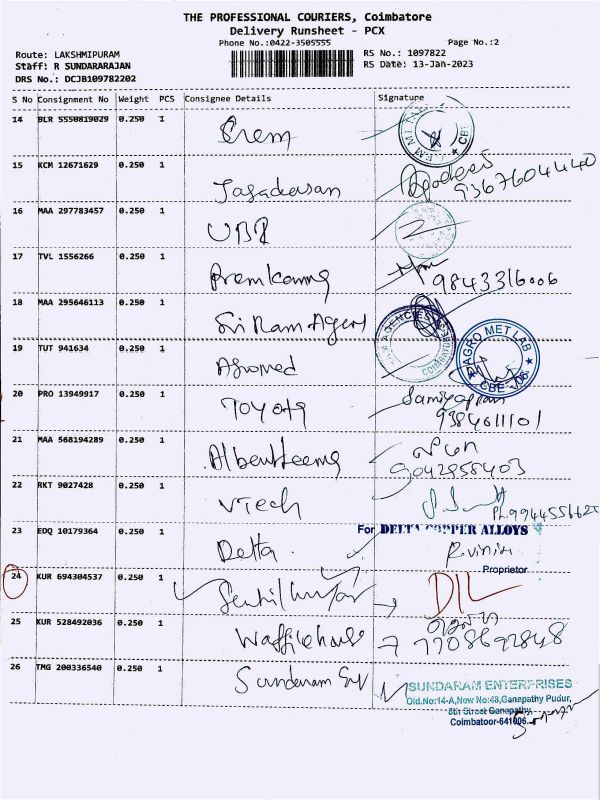 THE PROFESSIONAL COURIERS, Coimbatore
Delivery Runsheet - PCX
Phone No.:0422-3505555 Page No.:2
Route: LAKSHMIPURAM RS No.: 1097822
Staff: R SUNDARARAJAN RS Date: 13-Jan-2023
DRS No.: DCJB109782202
S No Consignment No Weight PCS Consignee Details Signature
14 BLR 5550819029 0.250 1 Prem
15 KCM 12671629 0.250 1 9367604440
16 MAA 297783457 0.250 1 UBI
17 TVL 1556266 0.250 1 Premkumar 9843316006
18 MAA 295646113 0.250 1 Sri Ram Agers
AGENCIES COIMBATORE
19 TUT 941634 0.250 1 Agromed
AGRO MET LAB CBE
20 PRO 13949917 0.250 1 Toyota Samiyappan
9384011101
21 MAA 568194289 0.250 1
9042958403
22 RKT 9027428 0.250 1 VTech
23 EDQ 10179364 0.250 1 Delta For DELTA COPPER ALLOYS
Proprietor
24 KUR 694304537 0.250 1 Senthilkumar DIL
25 KUR 528492036 0.250 1 7708692848
26 TMG 200336540 0.250 1 Sundaram
SUNDARAM ENTERPRISES
Old.No:14-A,New No:48,Ganapathy Pudur,
5th Street Ganapathy,
Coimbatoor-641006.